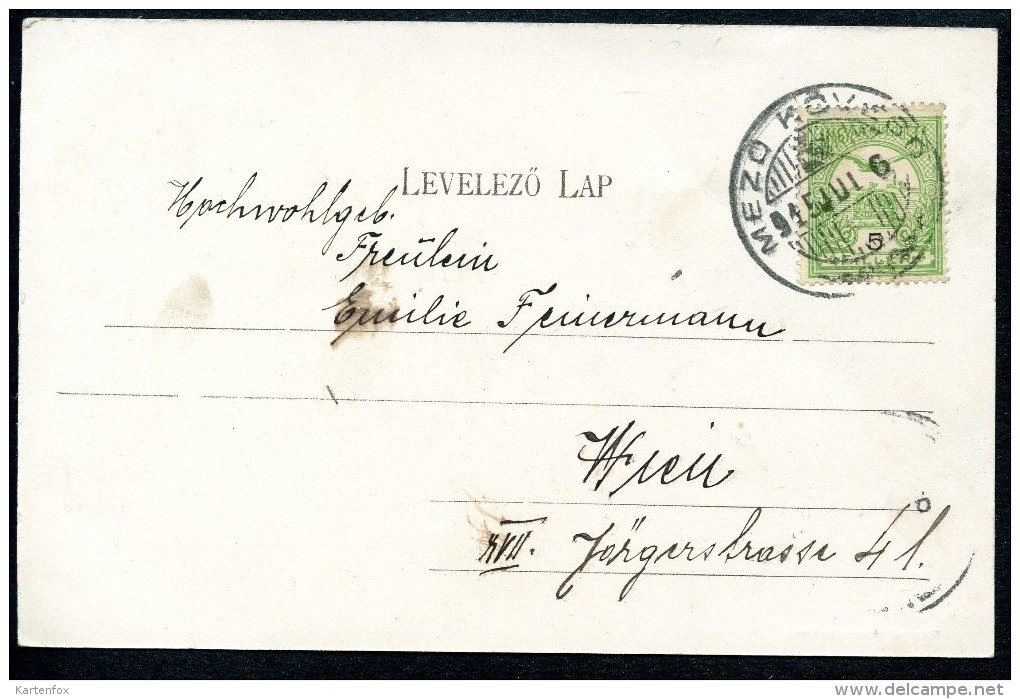 LEVELEZŐ LAP
MEZO KÖVESD
915 JUL 6
5
Hochwohlgeb.
Freülein
Emilie Feinermann
Wien
XVII. Jörgerstrasse 41.
Kartenfox
delcampe.net